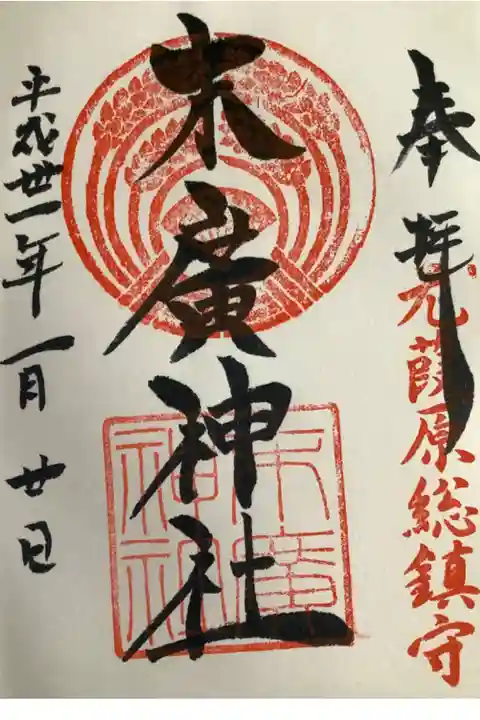 奉拝
元葭原総鎮守
末廣神社
末廣
神社
平成丗一年一月廿日